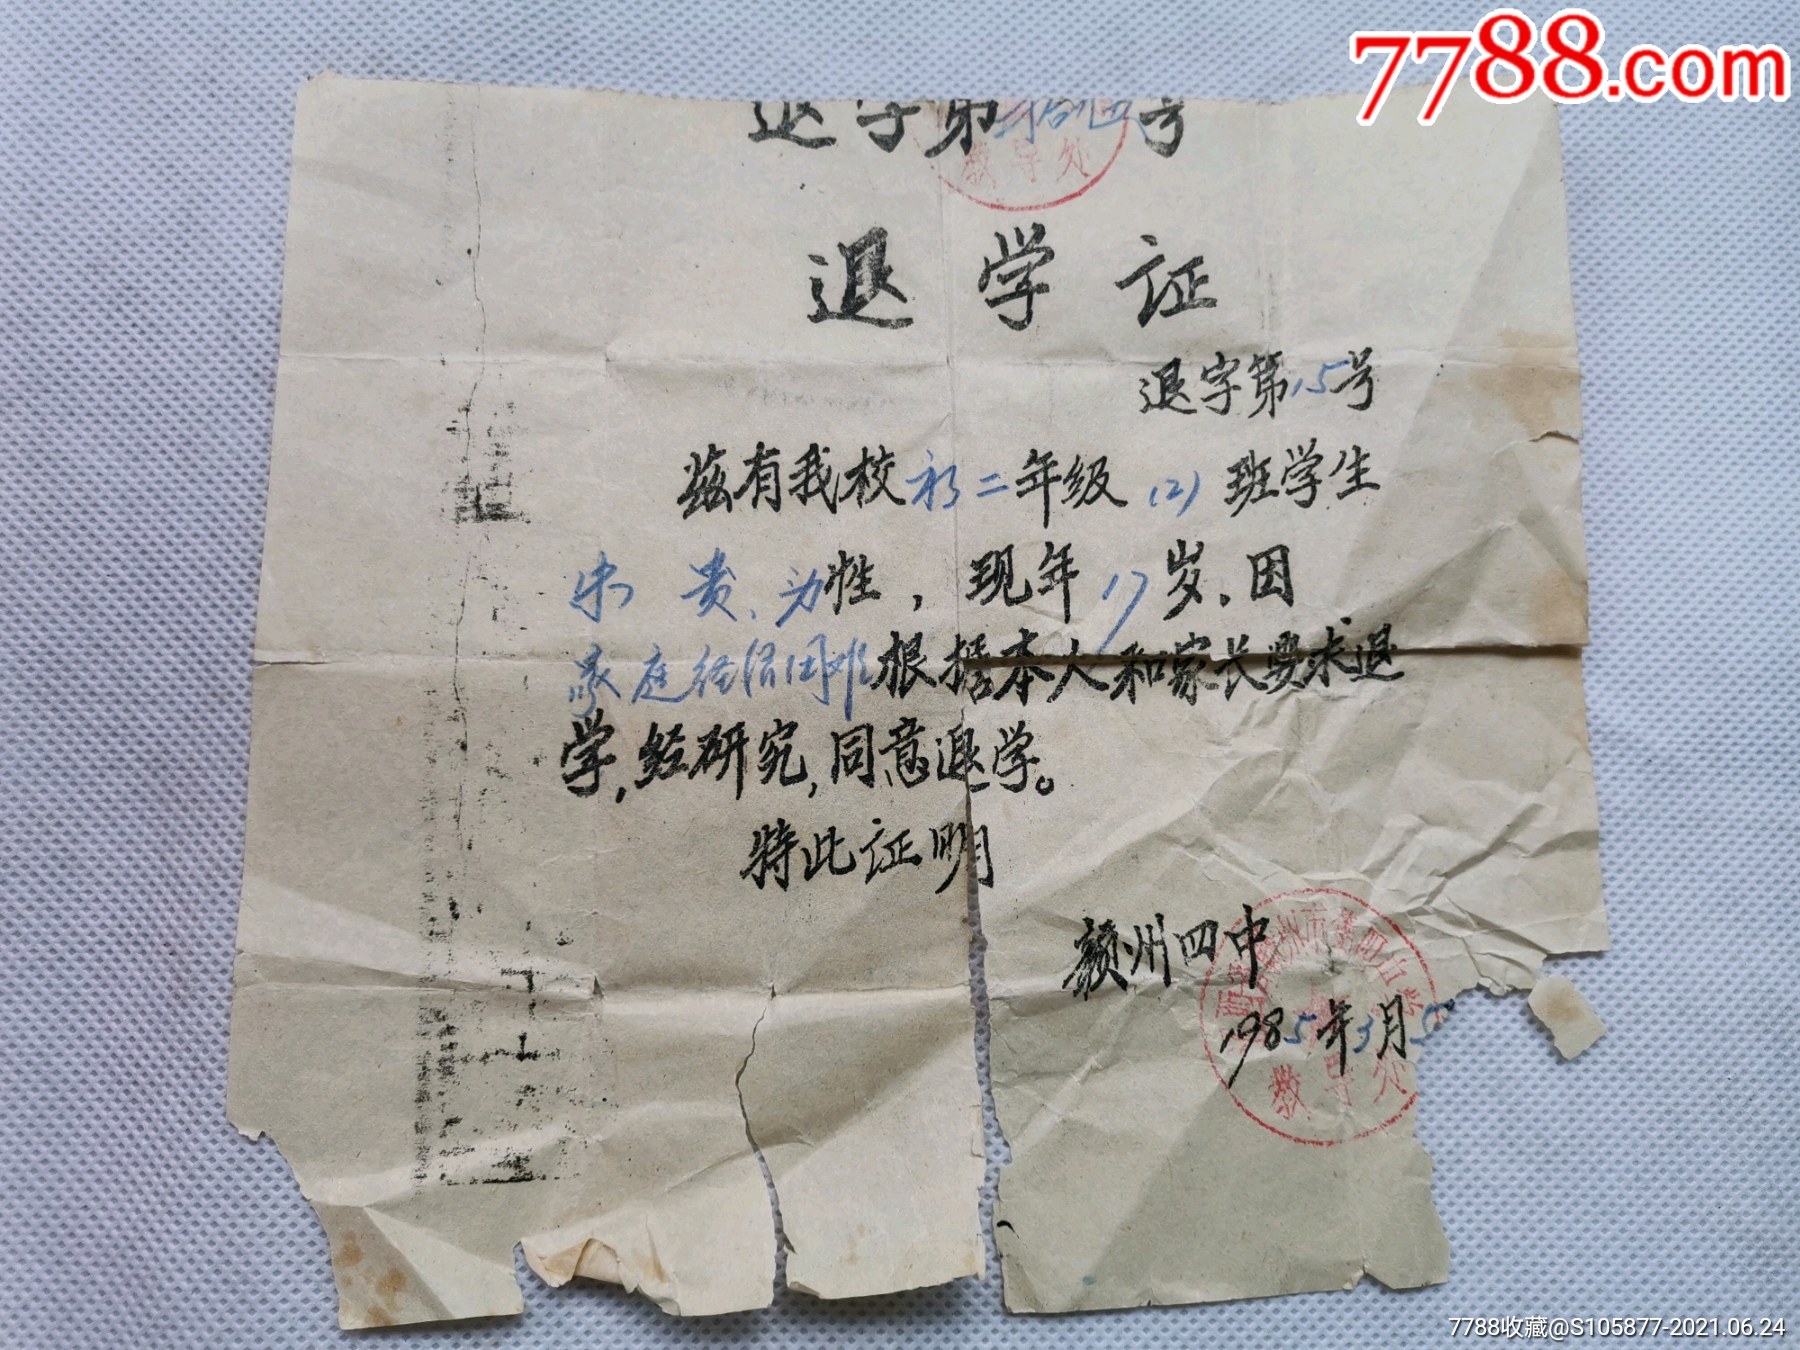 7788.com
退字第 号
教导处
退学证
退字第15号
兹有我校初二年级(2)班学生
宋贵、为性，现年17岁，因
家庭经济困难根据本人和家长要求退
学，经研究，同意退学。
特此证明
颍州四中
1985年3月5
教导处
7788收藏@S105877-2021.06.24